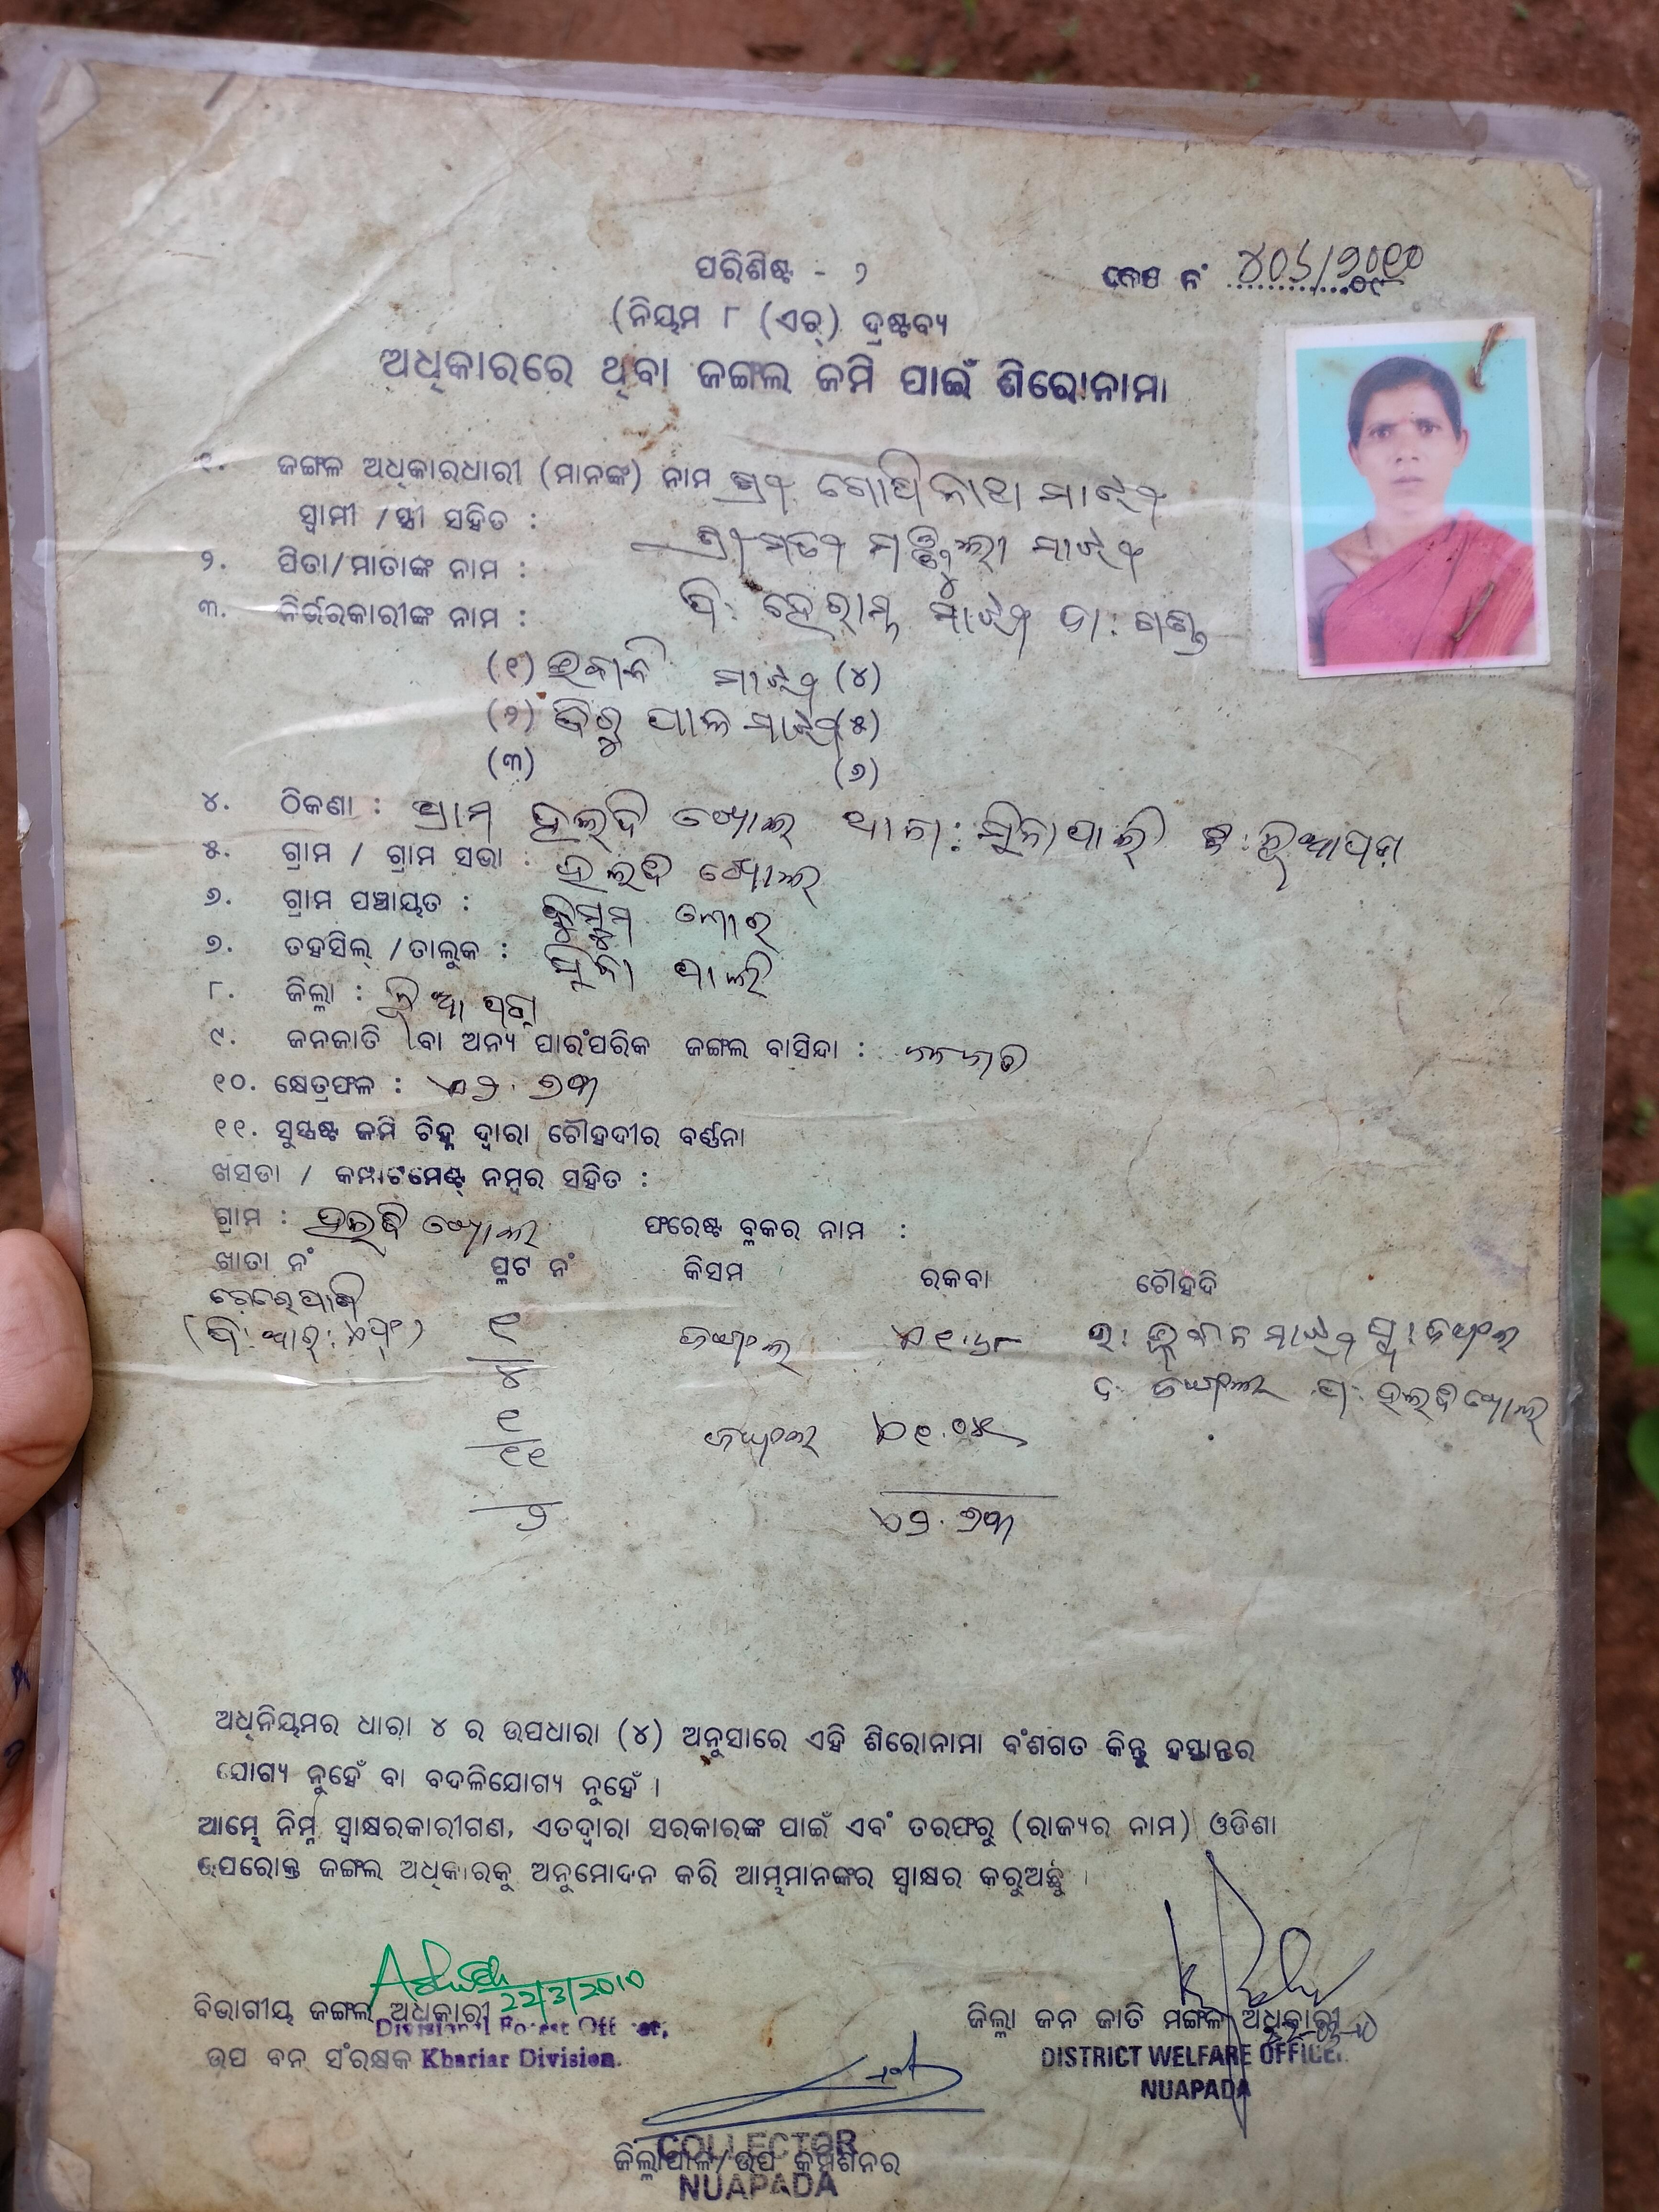 ପରିଶିଷ୍ଟ - ୨
କେଶ ନଂ ୪୦୬/୨୦୧୦
(ନିୟମ ୮ (ଏଚ୍) ଦ୍ରଷ୍ଟବ୍ୟ
ଅଧିକାରରେ ଥିବା ଜଙ୍ଗଲ ଜମି ପାଇଁ ଶିରୋନାମା
୧. ଜଙ୍ଗଲ ଅଧିକାରଧାରୀ (ମାନଙ୍କ) ନାମ ଶ୍ରୀ ଗୋପିନାଥ ମାଝୀ
ସ୍ଵାମୀ /ସ୍ତ୍ରୀ ସହିତ : ଶ୍ରୀମତୀ ମାଝୀ
୨. ପିତା/ମାତାଙ୍କ ନାମ : ପି: ମାଝୀ ଜା: ଗଣ୍ଡ
୩. ନିର୍ଭରକାରୀଙ୍କ ନାମ :
(୧) ମାଝୀ (୪)
(୨) ପାଳ ମାଝୀ (୫)
(୩) (୬)
୪. ଠିକଣା : ଗ୍ରାମ ହଲ୍‌ଦି ଖୋଲ୍ ଥାନା: ସିନାପାଲି ଜି: ନୂଆପଡା
୫. ଗ୍ରାମ / ଗ୍ରାମ ସଭା : ହଲଦି ଖୋଲ୍
୬. ଗ୍ରାମ ପଞ୍ଚାୟତ :
୭. ତହସିଲ୍ /ତାଲୁକ : ସିନା ପାଲି
୮. ଜିଲ୍ଲା : ନୂଆ ପଡା
୯. ଜନଜାତି ବା ଅନ୍ୟ ପାରଂପରିକ ଜଙ୍ଗଲ ବାସିନ୍ଦା : ଜନଜାତି
୧୦. କ୍ଷେତ୍ରଫଳ : ଏ୨.୭୩
୧୧. ସୁସ୍ପଷ୍ଟ ଜମି ଚିହ୍ନ ଦ୍ଵାରା ଚୌହଦୀର ବର୍ଣ୍ଣନା
ଖସଡା / କମ୍ପାଟମେଣ୍ଟ ନମ୍ବର ସହିତ :
ଗ୍ରାମ : ହଲ୍‌ଦି ଖୋଲ ଫରେଷ୍ଟ ବ୍ଲକର ନାମ :
ଖାତା ନଂ ପ୍ଲଟ ନଂ କିସମ ରକବା ଚୌହଦି
(ଡି: ଆର୍: ଏଫ୍) ୧ ଜଙ୍ଗଲ ଏ୧.୬୮ ଉ: ମାଝୀ ପୂ: ଜଙ୍ଗଲ
୪ ଦ: ଜଙ୍ଗଲ ପ: ହଲ୍‌ଦିଖୋଲ୍
୧ ଜଙ୍ଗଲ ଏ୧.୦୫
୧୧
୨ ଏ୨.୭୩
ଅଧିନିୟମର ଧାରା ୪ ର ଉପଧାରା (୪) ଅନୁସାରେ ଏହି ଶିରୋନାମା ବଂଶଗତ କିନ୍ତୁ ହସ୍ତାନ୍ତର
ଯୋଗ୍ୟ ନୁହେଁ ବା ବଦଳିଯୋଗ୍ୟ ନୁହେଁ ।
ଆମ୍ଭେ ନିମ୍ନ ସ୍ଵାକ୍ଷରକାରୀଗଣ, ଏତଦ୍ଵାରା ସରକାରଙ୍କ ପାଇଁ ଏବଂ ତରଫରୁ (ରାଜ୍ୟର ନାମ) ଓଡିଶା
ଉପରୋକ୍ତ ଜଙ୍ଗଲ ଅଧିକାରକୁ ଅନୁମୋଦନ କରି ଆମ୍ଭମାନଙ୍କର ସ୍ଵାକ୍ଷର କରୁଅଛୁ ।
22/3/2010
ବିଭାଗୀୟ ଜଙ୍ଗଲ ଅଧିକାରୀ ଜିଲ୍ଲା ଜନ ଜାତି ମଙ୍ଗଳ ଅଧିକାରୀ
Divisional Forest Officer,
ଉପ ବନ ସଂରକ୍ଷକ Khariar Division. DISTRICT WELFARE OFFICER
NUAPADA
COLLECTOR
ଜିଲ୍ଲାପାଳ/ଉପ କମିଶନର
NUAPADA